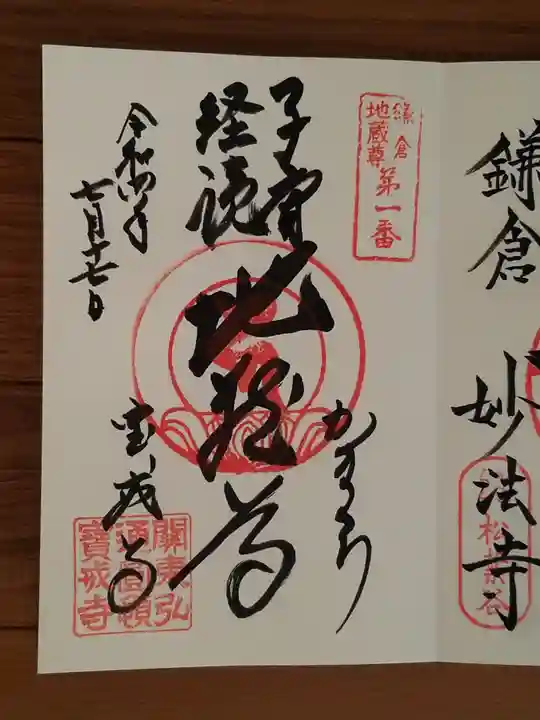 鎌倉 妙法寺
松葉谷
鎌倉
地蔵尊
第一番
子安
経読
地蔵尊
かまくら
宝戒寺
令和四年
七月十七日
關東弘
通圓頓
寶戒寺